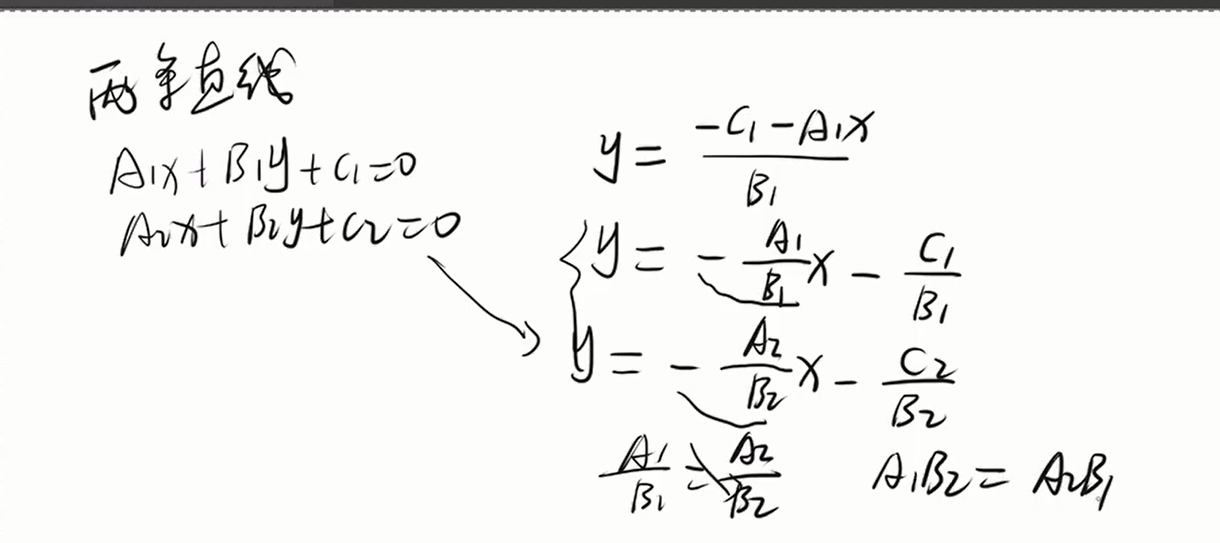 两条直线
A₁x + B₁y + C₁ = 0
A₂x + B₂y + C₂ = 0
y = \frac{-C₁ - A₁x}{B₁}
y = -\frac{A₁}{B₁}x - \frac{C₁}{B₁}
y = -\frac{A₂}{B₂}x - \frac{C₂}{B₂}
\frac{A₁}{B₁} = \frac{A₂}{B₂} A₁B₂ = A₂B₁